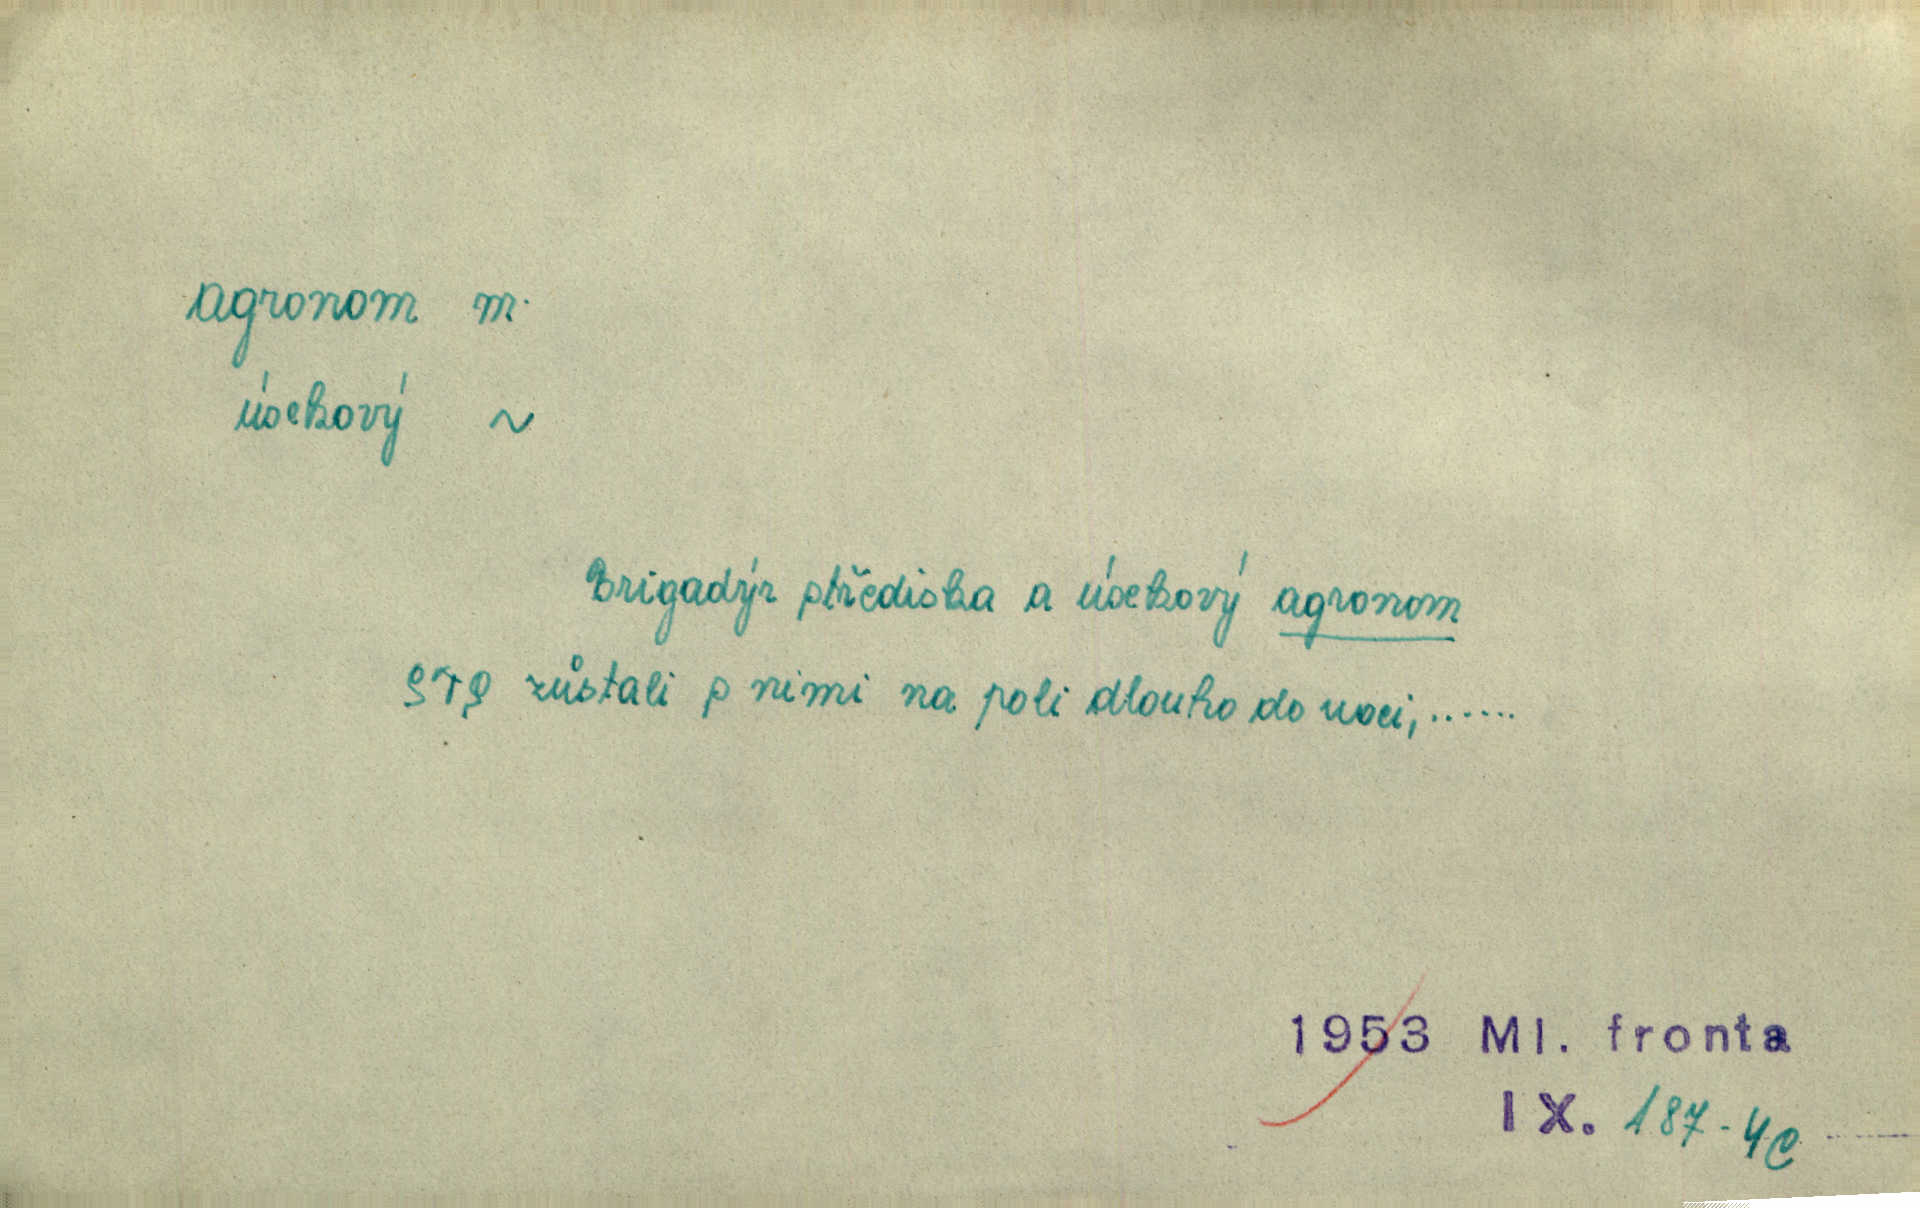 agronom m.
úsekový ~
Brigadýr střediska a úsekový agronom
STS zůstali s nimi na poli dlouho do noci,.......
1953 Ml. fronta
IX. 187-4c